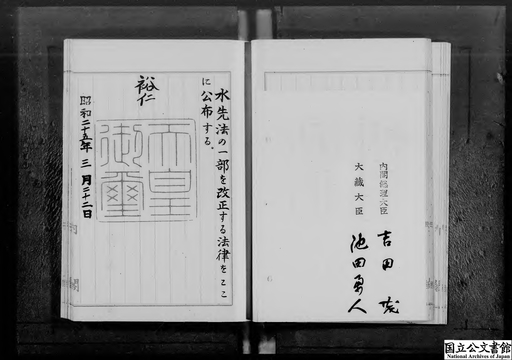 水先法の一部を改正する法律をここ
に公布する。
裕仁
天皇
御璽
昭和二十五年三月二十二日
内閣総理大臣
吉田茂
大蔵大臣
池田勇人
国立公文書館
National Archives of Japan